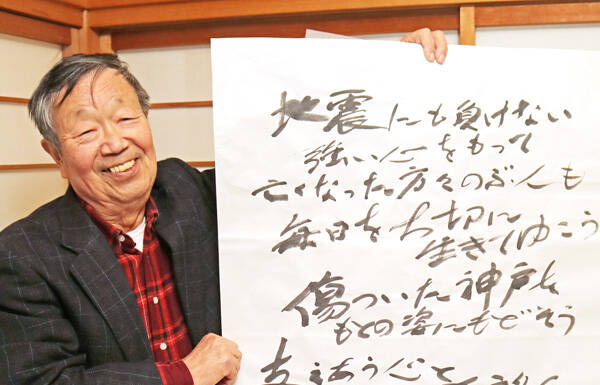 地震にも負けない
強い心をもって
亡くなった方々のぶんも
毎日を大切に
生きてゆこう
傷ついた神戸を
もとの姿にもどそう
支えあう心と